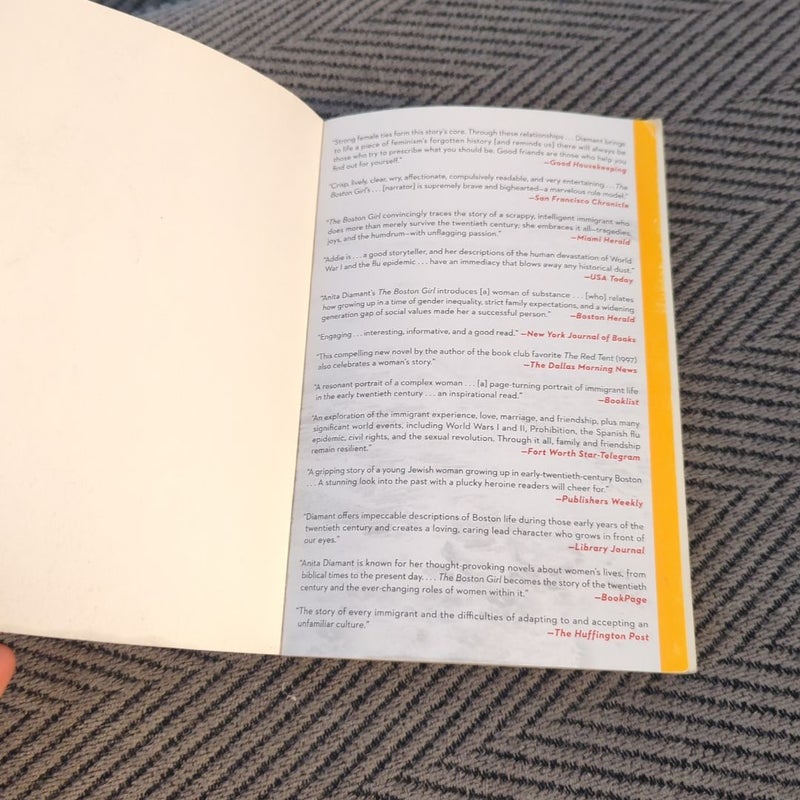 "Strong female ties form this story's core. Through these relationships . . . Diamant brings
to life a piece of feminism's forgotten history [and reminds us] there will always be
those who try to prescribe what you should be. Good friends are those who help you
find out for yourself."
—Good Housekeeping
"Crisp, lively, clear, wry, affectionate, compulsively readable, and very entertaining . . . The
Boston Girl's . . . [narrator] is supremely brave and bighearted—a marvelous role model."
—San Francisco Chronicle
"The Boston Girl convincingly traces the story of a scrappy, intelligent immigrant who
does more than merely survive the twentieth century; she embraces it all—tragedies,
joys, and the humdrum—with unflagging passion."
—Miami Herald
"Addie is . . . a good storyteller, and her descriptions of the human devastation of World
War I and the flu epidemic . . . have an immediacy that blows away any historical dust."
—USA Today
"Anita Diamant's The Boston Girl introduces [a] woman of substance . . . [who] relates
how growing up in a time of gender inequality, strict family expectations, and a widening
generation gap of social values made her a successful person." —Boston Herald
"Engaging . . . interesting, informative, and a good read." —New York Journal of Books
"This compelling new novel by the author of the book club favorite The Red Tent (1997)
also celebrates a woman's story." —The Dallas Morning News
"A resonant portrait of a complex woman . . . [a] page-turning portrait of immigrant life
in the early twentieth century . . . an inspirational read." —Booklist
"An exploration of the immigrant experience, love, marriage, and friendship, plus many
significant world events, including World Wars I and II, Prohibition, the Spanish flu
epidemic, civil rights, and the sexual revolution. Through it all, family and friendship
remain resilient." —Fort Worth Star-Telegram
"A gripping story of a young Jewish woman growing up in early-twentieth-century Boston
. . . A stunning look into the past with a plucky heroine readers will cheer for."
—Publishers Weekly
"Diamant offers impeccable descriptions of Boston life during those early years of the
twentieth century and creates a loving, caring lead character who grows in front of
our eyes." —Library Journal
"Anita Diamant is known for her thought-provoking novels about women's lives, from
biblical times to the present day. . . . The Boston Girl becomes the story of the twentieth
century and the ever-changing roles of women within it." —BookPage
"The story of every immigrant and the difficulties of adapting to and accepting an
unfamiliar culture." —The Huffington Post